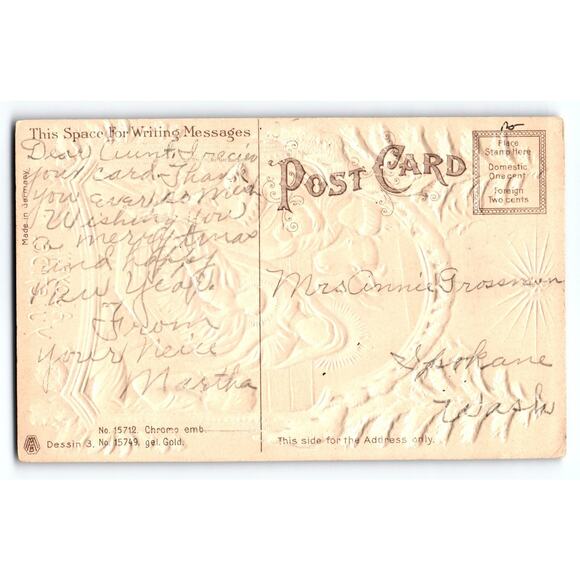 This Space For Writing Messages
Dear Aunt, I reciev
your card. Thank
you ever so much
Wishing you
a merry Xmas
and happy
New Year.
From
your neice
Martha
Made in Germany.
No. 15712. Chromo emb.
Dessin 3. No. 15749. gel. Gold.
POST CARD
Place
Stamp Here
Domestic
One cent
Foreign
Two cents
Mrs Annie Grossman
Spokane
Wash
This side for the Address only.